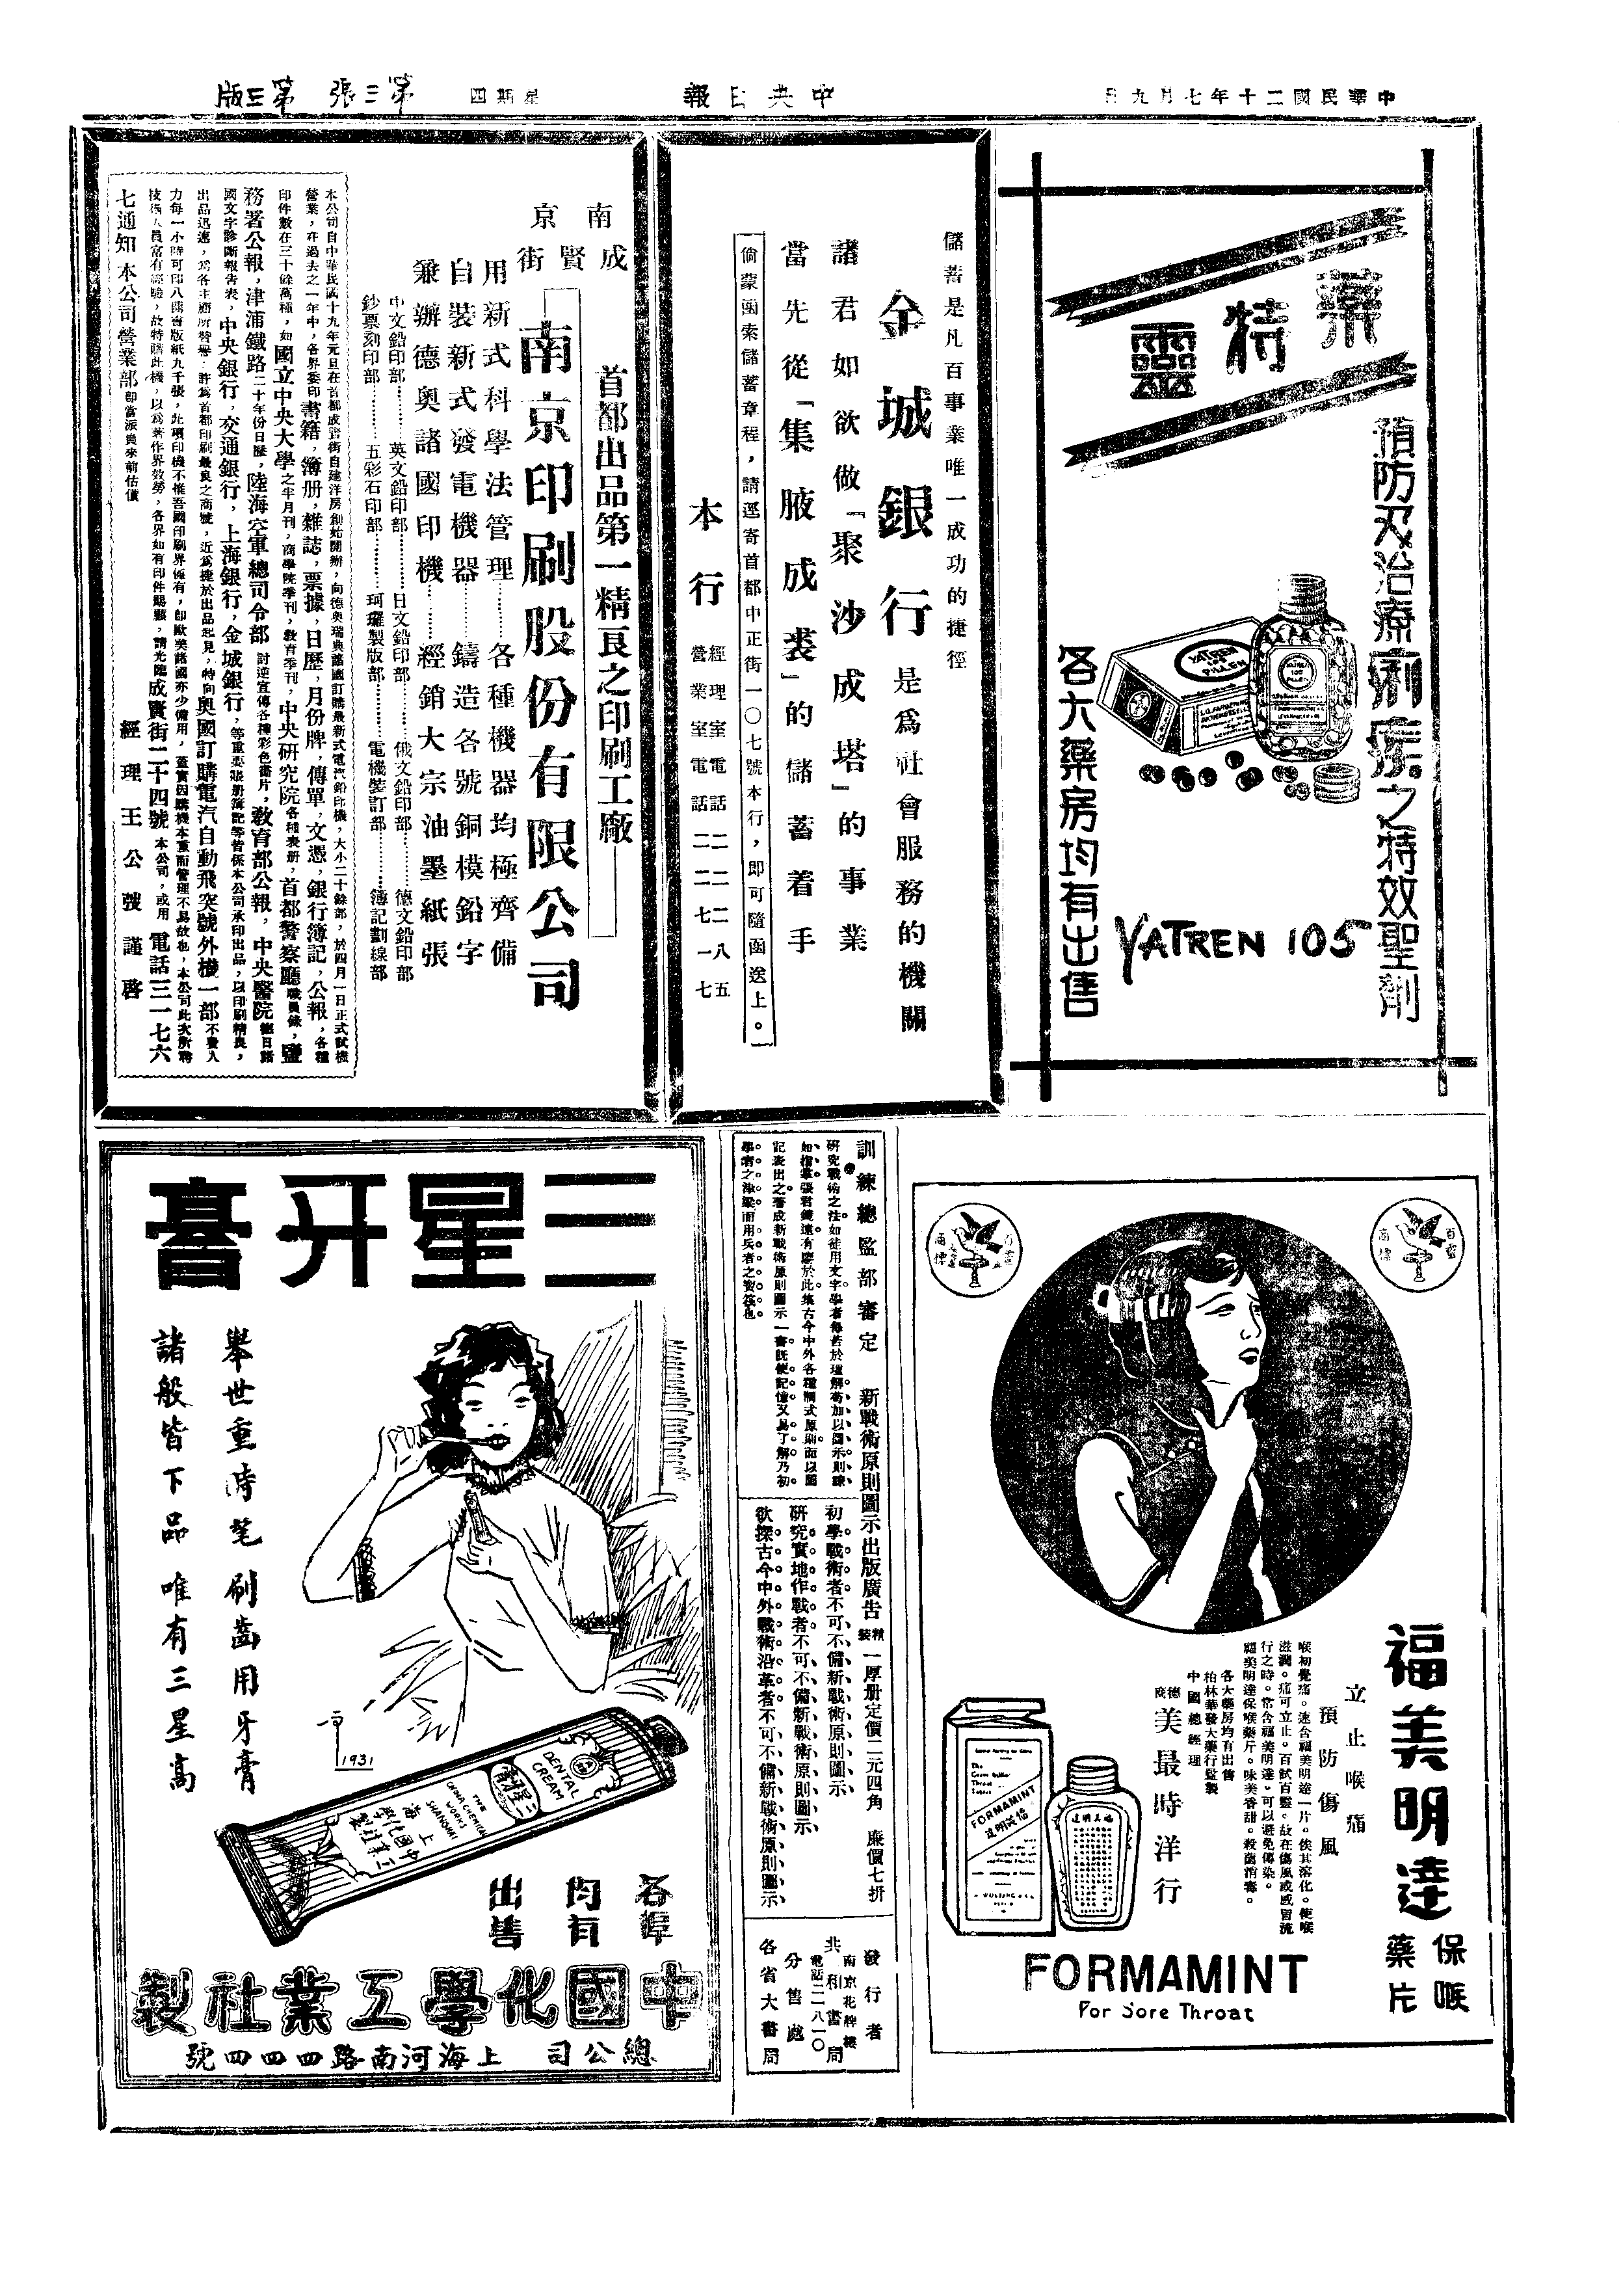 中華民國二十年七月九日
中央日報
星期四
第三張 第三版
藥特靈
預防及治療痢疾之特效聖劑
YATREN 105 PILLEN
YATREN 105
各大藥房均有出售
儲蓄是凡百事業唯一成功的捷徑
金城銀行是爲社會服務的機關
諸君如欲做「聚沙成塔」的事業
當先從「集腋成裘」的儲蓄着手
倘蒙函索儲蓄章程，請逕寄首都中正街一〇七號本行，即可隨函送上。
本行
經理室電話二二二八五
營業室電話二二七一七
南京
成賢街
首都出品第一精良之印刷工廠
南京印刷股份有限公司
用新式科學法管理……各種機器均極齊備
自裝新式發電機器……鑄造各號銅模鉛字
兼辦德奧諸國印機……經銷大宗油墨紙張
中文鉛印部………英文鉛印部………日文鉛印部………俄文鉛印部………德文鉛印部
鈔票刻印部………五彩石印部………珂羅製版部………電機裝訂部………簿記劃線部
本公司自中華民國十九年元旦在首都成賢街自建洋房創始開辦，向德奧瑞典諸國訂購最新式電汽鉛印機，大小二十餘部，於四月一日正式試機
營業，在過去之一年中，各界委印書籍，簿册，雜誌，票據，日歷，月份牌，傳單，文憑，銀行簿記，公報，各種
印件數在三十餘萬種，如國立中央大學之半月刊，商學院季刊，教育季刊，中央研究院各種表册，首都警察廳職員錄，鹽
務署公報，津浦鐵路二十年份日歷，陸海空軍總司令部討逆宣傳各種彩色畫片，教育部公報，中央醫院德日諸
國文字診斷報告表，中央銀行，交通銀行，上海銀行，金城銀行，等重要張册簿記等皆係本公司承印出品，以印刷精良，
出品迅速，爲各主顧所贊譽，許爲首都印刷最良之商號，近爲捷於出品起見，特向奧國訂購電汽自動飛突號外機一部不費人
力每一小時可印八開書版紙九千張，此項印機不惟吾國印刷界僅有，即歐美諸國亦少備用，蓋實因購機本重而管理不易故也，本公司此次所聘
技術人員富有經驗，故特購此機，以爲著作界效勞，各界如有印件賜顧，請光臨成賢街二十四號本公司，或用電話三一七六
七通知本公司營業部即當派員來前估價
經理王公弢謹啓
百靈商標
百靈商標
福美明達
保喉藥片
立止喉痛
預防傷風
喉初覺痛。速含福美明達一片。俟其溶化。使喉
滋潤。痛可立止。百試百靈。故在傷風或感冒流
行之時。常含福美明達。可以避免傳染。
福美明達保喉藥片。味美香甜。殺菌消毒。
各大藥房均有出售
柏林華發大藥行監製
中國總經理
德商美最時洋行
FORMAMINT
福美明達
FORMAMINT
For Sore Throat
訓練總監部審定 新戰術原則圖示出版廣告 精裝一厚册定價二元四角 廉價七折
研究戰術之法如徒用文字學者每苦於理解苟加以圖示則瞭
如指掌張君鏡遠有鑒於此集古今中外各種制式原則而以圖
記表出之著成新戰術原則圖示一書既便記憶又易了解乃初
學者之津梁而用兵者之寶筏也。
初學戰術者不可不備新戰術原則圖示
研究實地作戰者不可不備新戰術原則圖示
欲探古今中外戰術沿革者不可不備新戰術原則圖示
發行者
南京花牌樓
共和書局
電話二二八一〇
分售處
各省大書局
三星牙膏
舉世重時髦刷齒用牙膏
諸般皆下品唯有三星高
1931
DENTAL CREAM
三星牙膏
THE CHINA CHEMICAL WORKS SHANGHAI
上海
中國化學工業社製
各埠均有出售
中國化學工業社製
總公司 上海河南路四四四號